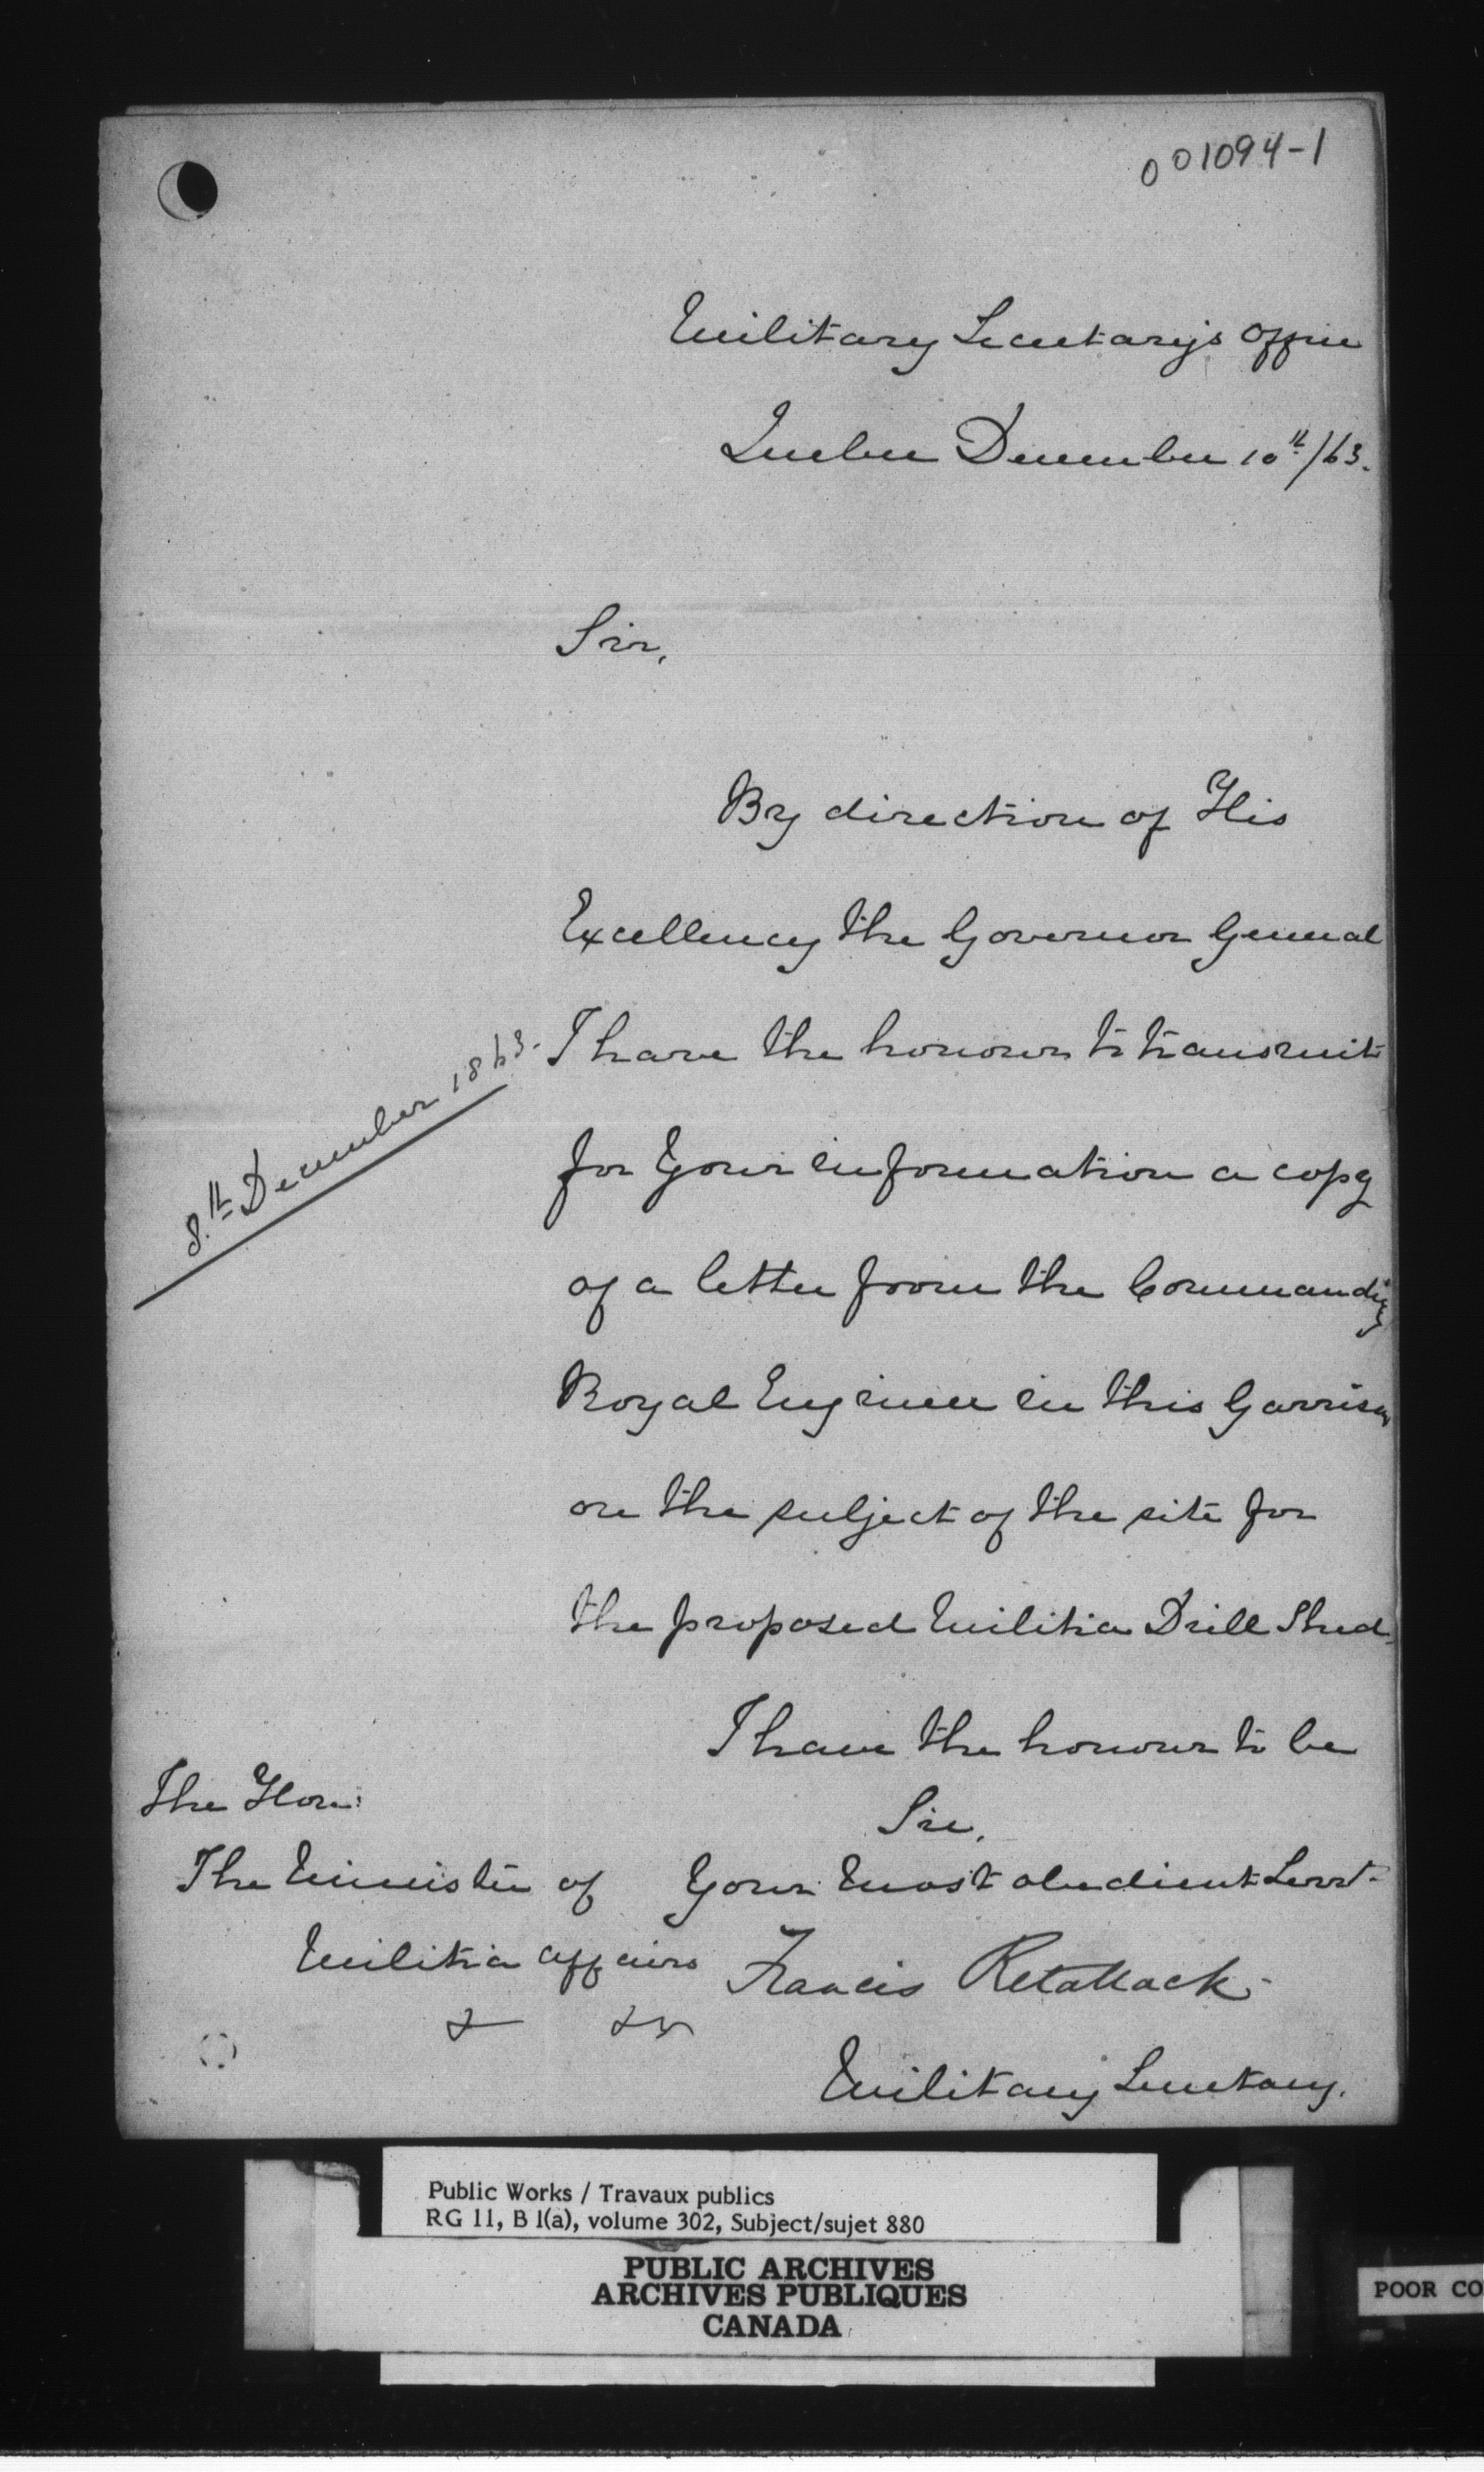 001094-1
Military Secretary's Office
Quebec December 10th/63.
Sir,
By direction of His
Excellency the Governor General
I have the honour to transmit
8.th December 1863.
for Your information a copy
of a letter from the Commanding
Royal Engineer in this Garrison
on the subject of the site for
the proposed Militia Drill Shed.
I have the honour to be
Sir,
Your most obedient Servt.
Francis Retallack
Military Secretary.
The Hon:
The Minister of
Militia Affairs
& &c
Public Works / Travaux publics
RG 11, B 1(a), volume 302, Subject/sujet 880
PUBLIC ARCHIVES
ARCHIVES PUBLIQUES
CANADA
POOR CO